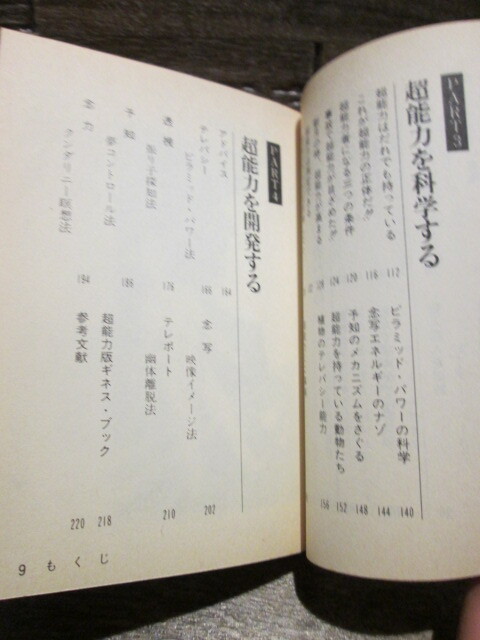 PART3
超能力を科学する
超能力はだれでも持っている 112
これが超能力の正体だ!! 116
超能力者になる三つの条件 120
ピラミッド・パワーの科学 140
念写エネルギーのナゾ 144
予知のメカニズムをさぐる 148
超能力を持っている動物たち 152
植物のテレパシー能力 156
PART4
超能力を開発する
アドバイス 164
テレパシー
ピラミッド・パワー法 166
透視
振り子探知法 176
予知
夢コントロール法 186
念力
クンダリニー瞑想法 194
念写
映像イメージ法 202
テレポート
幽体離脱法 210
超能力版ギネス・ブック 218
参考文献 220
9 もくじ